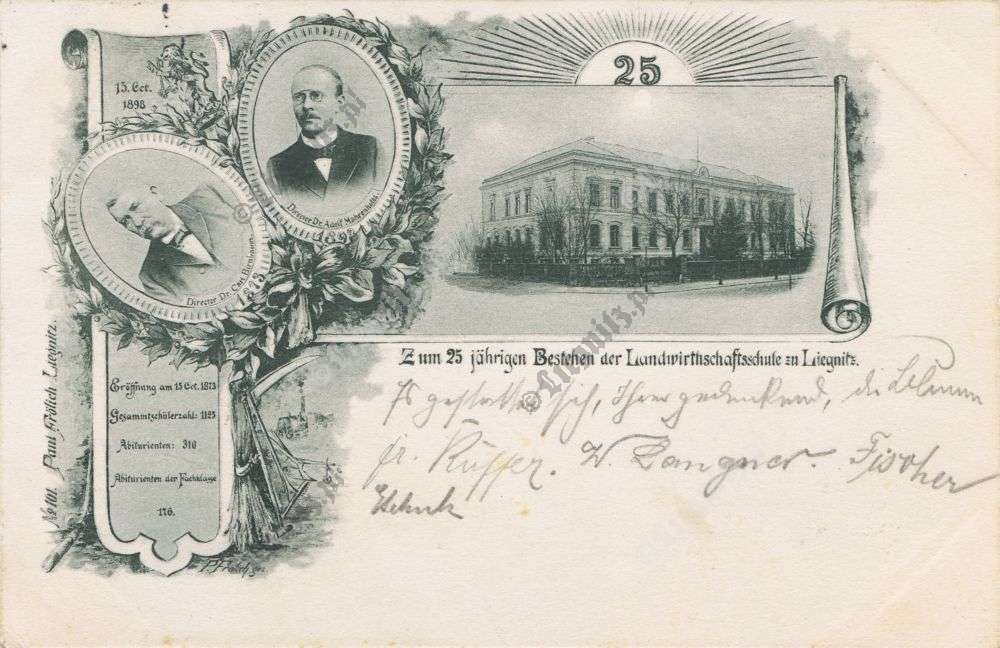 15. Oct.
1898
25
Director Dr. Adolf
1898
Director Dr. Carl Birnbaum
1873
Zum 25 jährigen Bestehen der Landwirthschaftsschule zu Liegnitz.
Eröffnung am 15 Oct. 1873
Gesammtschülerzahl: 1125
Abiturienten: 310
Abiturienten der Fachklasse
176.
No 101. Paul Frölich Liegnitz.
Es gestatten sich, Ihrer gedenkend, die
fr. Küffer. W. Langner. Fischer
© Liegnitz.pl